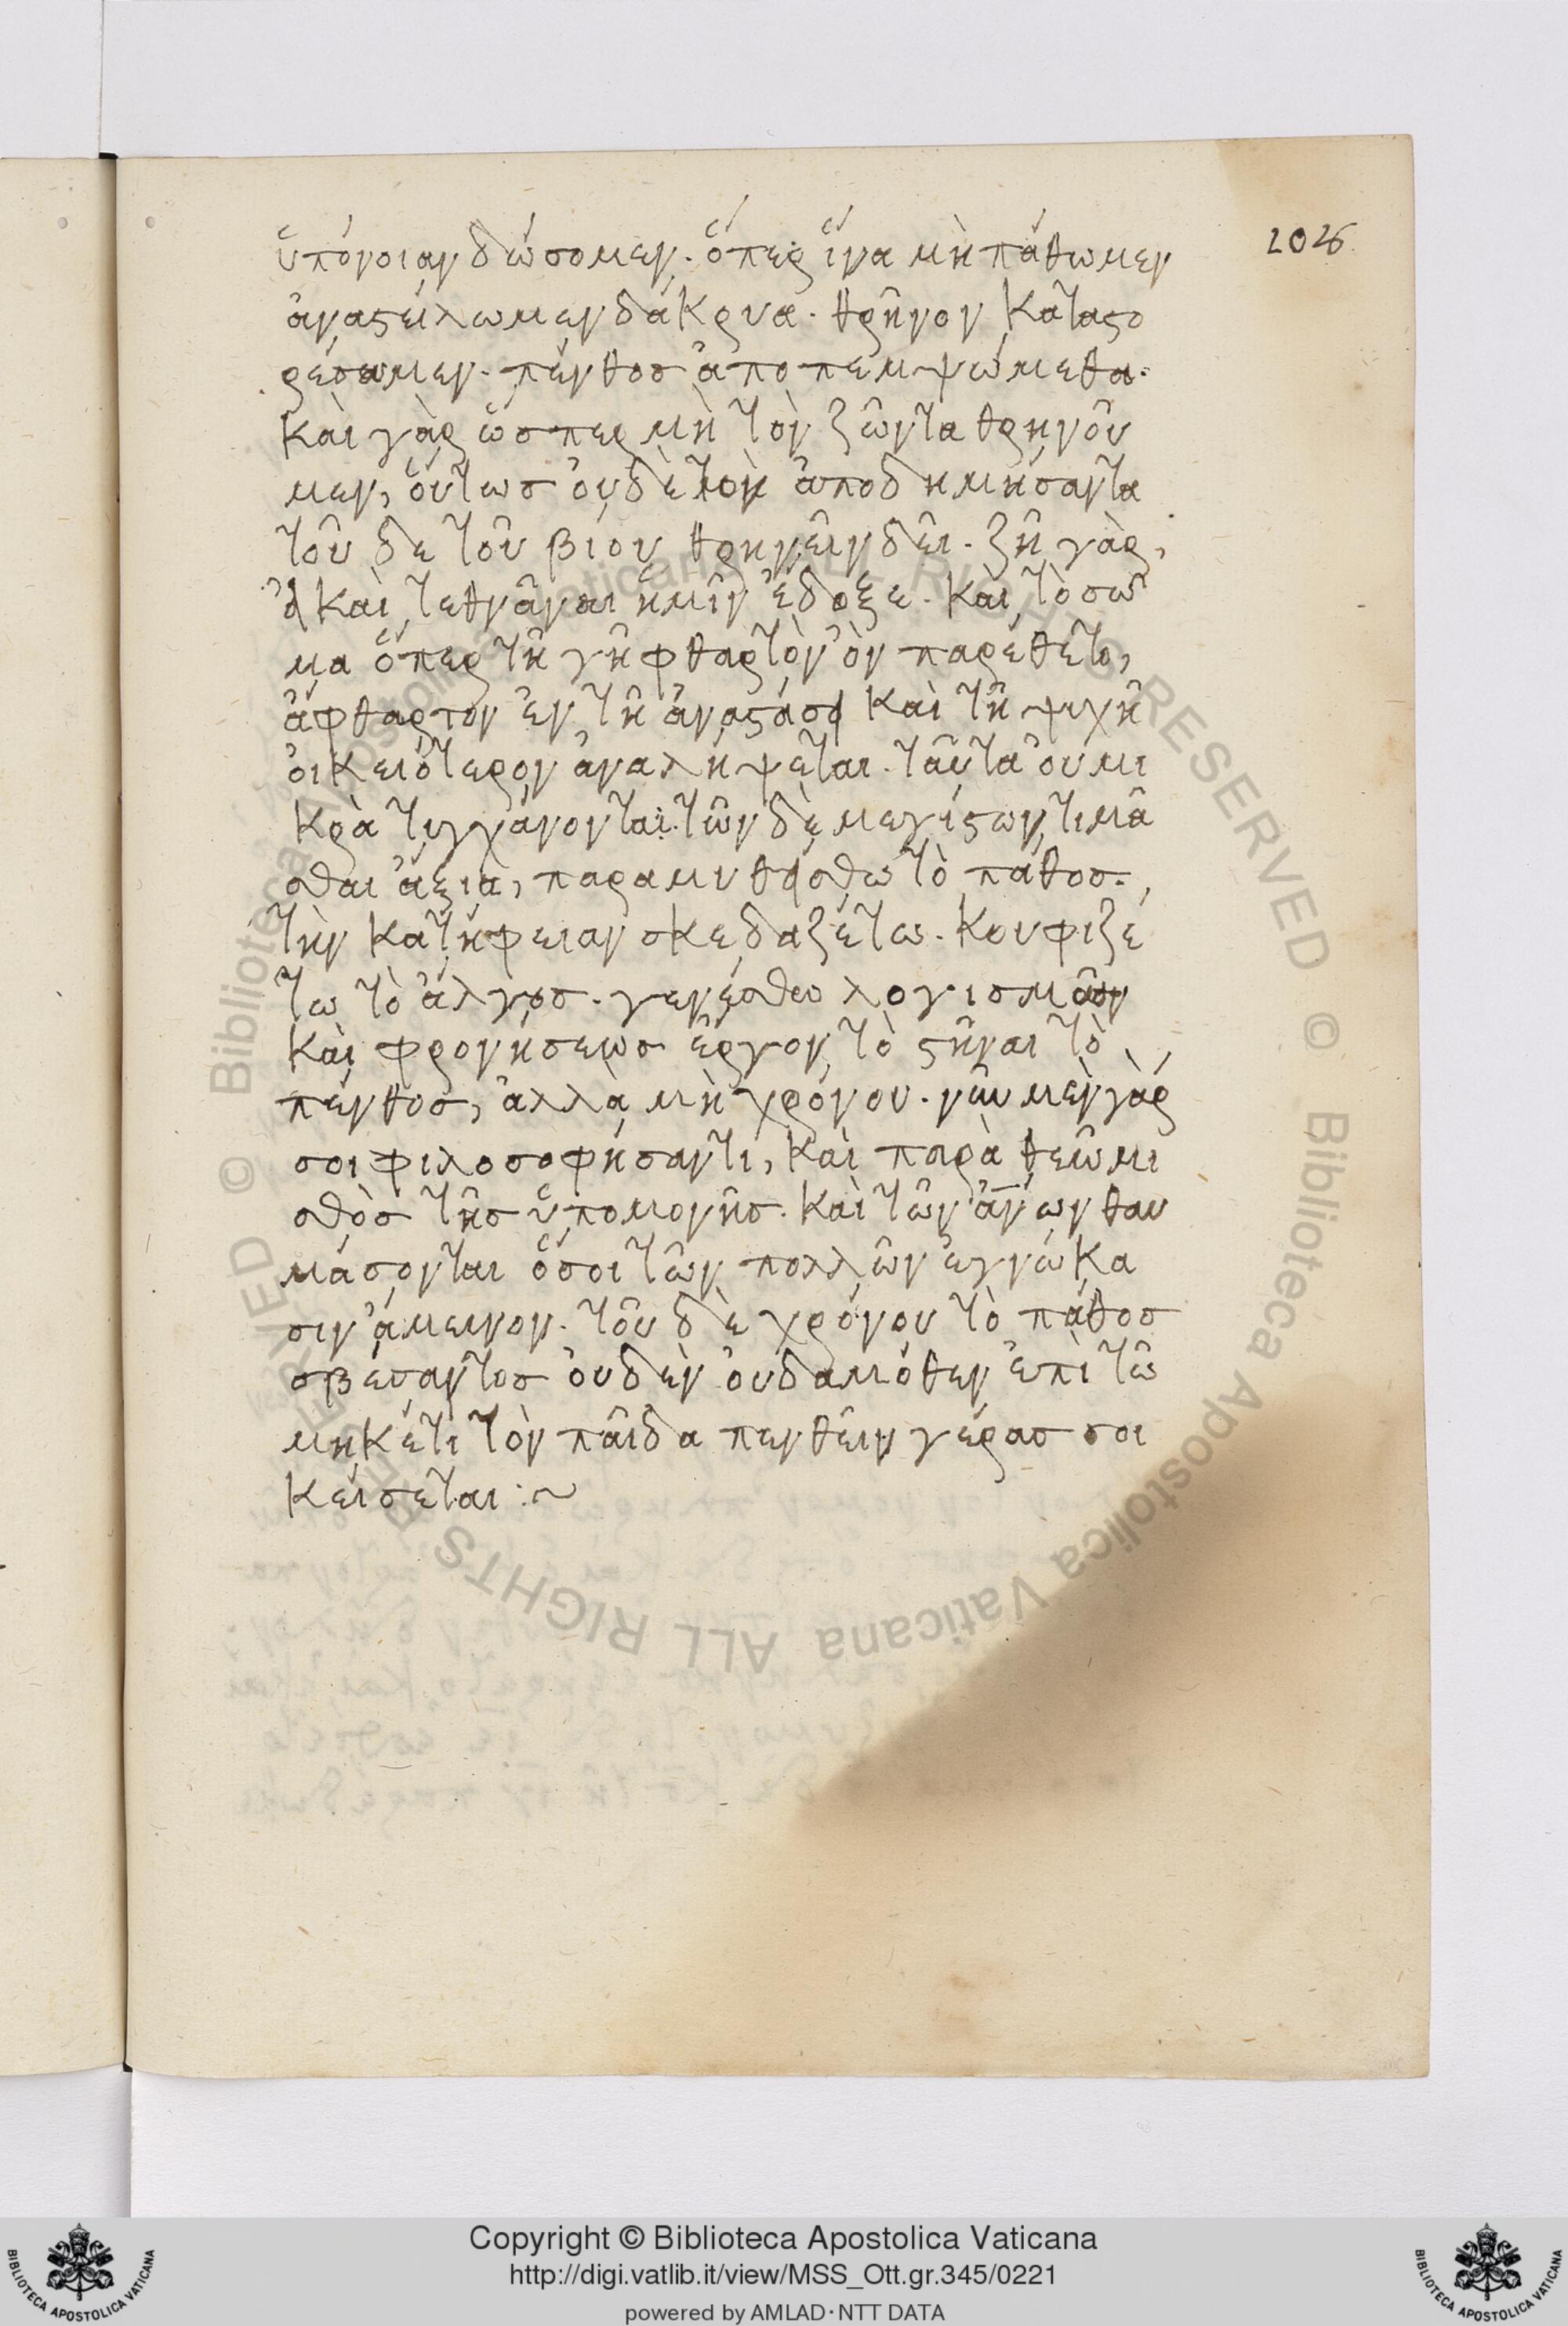 1026
ὑπόνοιαν δώσομεν. ὅπερ ἵνα μὴ πάθωμεν
ἀναστείλωμεν δάκρυα. θρῆνον καταστο
ρέσωμεν. πένθος ἀποπεμψώμεθα.
καὶ γὰρ ὥσπερ μὴ τὸν ζῶντα θρηνοῦ
μεν, οὕτως οὐδὲ τὸν ἀποδημήσαντα
τοῦ δε τοῦ βίου θρηνεῖν δεῖ. ζῆ γὰρ,
εἰ καὶ τεθνᾶναι ἡμῖν ἔδοξε. καὶ τὸ σῶ
μα ὅπερ τῆ γῆ φθαρτὸν ὂν παρέθετο,
ἄφθαρτον ἐν τῆ ἀναστάσει καὶ τῆ ψυχῆ
οἰκειότερον ἀναλήψεται. ταῦτα οὐ μι
κρὰ τυγχάνονται. τῶν δὲ μεγίστων τιμᾶ
σθαι ἄξια, παραμυθείσθω τὸ πάθος.
τὴν κατήφειαν σκεδαζέτω. κουφιζέ
τω τὸ ἄλγος. γενέσθω λογισμῶν
καὶ φρονήσεως ἔργον τὸ στῆναι τὸ
πένθος, ἀλλὰ μὴ χρόνου. νῦν μὲν γὰρ
σοι φιλοσοφήσαντι, καὶ παρὰ θεῶ μι
σθὸς τῆς ὑπομονῆς. καὶ τῶν ἀν̅ων θαυ
μάσονται ὅσοι τῶν πολλῶν ἐγνώκα
σιν ἄμεινον. τοῦ δὲ χρόνου τὸ πάθος
σβέσαντος οὐδὲν οὐδαμόθεν ἐπὶ τῶ
μηκέτι τὸν παῖδα πενθεῖν γέρας σοι
κείσεται :~
Copyright © Biblioteca Apostolica Vaticana
http://digi.vatlib.it/view/MSS_Ott.gr.345/0221
powered by AMLAD·NTT DATA
BIBLIOTECA APOSTOLICA VATICANA
BIBLIOTECA APOSTOLICA VATICANA
© Biblioteca Apostolica Vaticana ALL RIGHTS RESERVED © Biblioteca Apostolica Vaticana ALL RIGHTS RESERVED